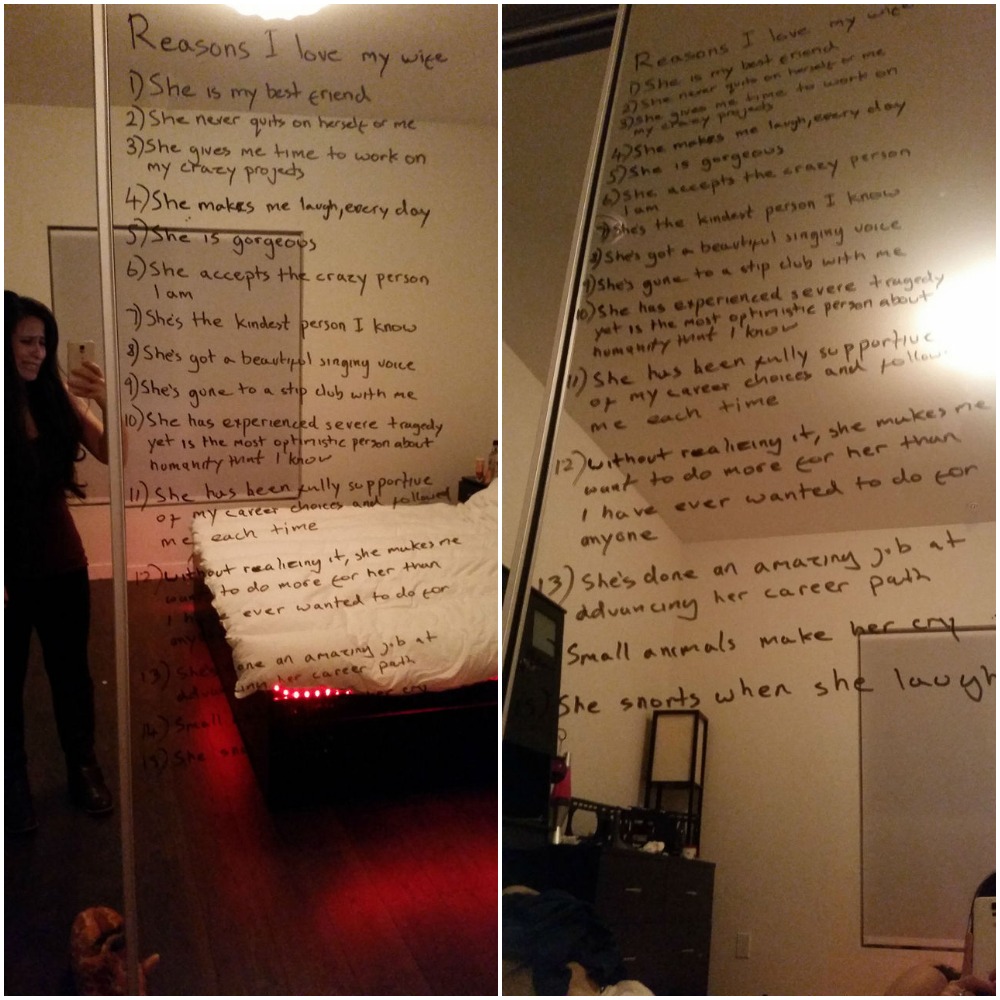 Reasons I love my wife
1) She is my best friend
2) She never quits on herself or me
3) She gives me time to work on
my crazy projects
4) She makes me laugh, every day
5) She is gorgeous
6) She accepts the crazy person
I am
7) She's the kindest person I know
8) She's got a beautiful singing voice
9) She's gone to a stip club with me
10) She has experienced severe tragedy
yet is the most optimistic person about
humanity that I know
11) She has been fully supportive
of my career choices and followed
me each time
12) Without realizing it, she makes me
want to do more for her than
I have ever wanted to do for
anyone
13) She's done an amazing job at
advancing her career path
14) Small her cry
15) She
Reasons I love my wife
1) She is my best friend
2) She never quits on herself or me
3) She gives me time to work on
my crazy projects
4) She makes me laugh, every day
5) She is gorgeous
6) She accepts the crazy person
I am
7) She's the kindest person I know
8) She's got a beautiful singing voice
9) She's gone to a stip club with me
10) She has experienced severe tragedy
yet is the most optimistic person about
humanity that I know
11) She has been fully supportive
of my career choices and follow
me each time
12) Without realizing it, she makes me
want to do more for her than
I have ever wanted to do for
anyone
13) She's done an amazing job at
advancing her career path
Small animals make her cry
15) She snorts when she laugh